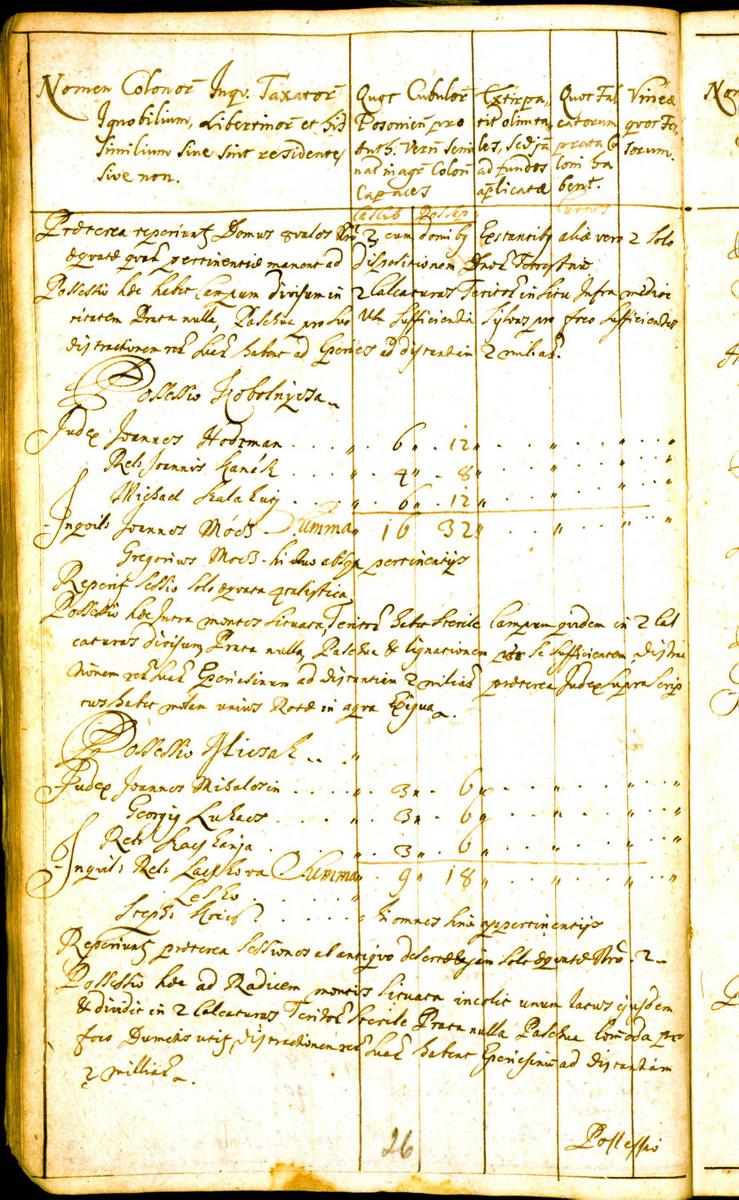 Nomen Colonor Inqv. Taxator
Ignobilium, Libertinor et his
Similium sive sint residentes
sive non.
Quot Cubulor
Posonien pro
Auth. Vern Semi
nat in agr Colon
Capaces
Extirpa,
tit olim ta,
les, sed jā
ad fundos
aplicatæ
Quot Fal
catorum
prata Co
loni ha
bent.
Vineæ
quot Fos
sorum.
Præterea reperiunt Domus 3 cum Domiby Extantiby aliæ vero 2 Solo
æquatæ pertinentiæ manent ad Dispositionem Terrestris
Possessio hæc habet Campum divisum in 2 Calcaturas Territor in situ Infra medioc
ritatem Prata nulla, Pascua pro suo Sufficientia Sylvas pro foco sufficientes
distractionem habent ad Eperies ad distantiam 2 miliar.
Possessio Kobolnyicza
Judex Joannes Hodman . . . . 6 12
Rel. Joannis Hanák . . . 4 8
Michael . . . 6 12
Inquil. Joannes Moch Summa 16 32
Gregorius Moch hi duo absq pertinentijs
Reperit Sessio Solo æquata
Possessio hæc Intra montes Situata, Territor habet Sterile Campum quidem in 2 Cal
caturas divisum, Prata nulla, Pascua & lignationem pro Se Sufficientem, Distrac
tionem Eperiesinum ad distantiam 2 miliar præterea Judex Supra Scrip
tus habet molam unius Rotæ in aqva Exigua.
Possessio
Judex Joannes Mihalosin . . . . 3 6
Georgij Lukacs . . . . 3 6
Rel. . . . 3 6
Inquil. Rel. Summa 9 18
Leško . . . .
Steph. . . . . hi omnes sine pertinentijs
Reperiunt præterea Sessiones ab antiqvo desertæ & jam Solo æquatæ Nro 2
Possessio hæc ad Radicem montis Situata incolit unum latus ejusdem
& dividit in 2 Calcaturas Territor Sterile Prata nulla Pascua Comoda pro
foco Dumetis utit, distractionem habent Eperiesinu ad distantiam
2 milliar.
26
Possessio